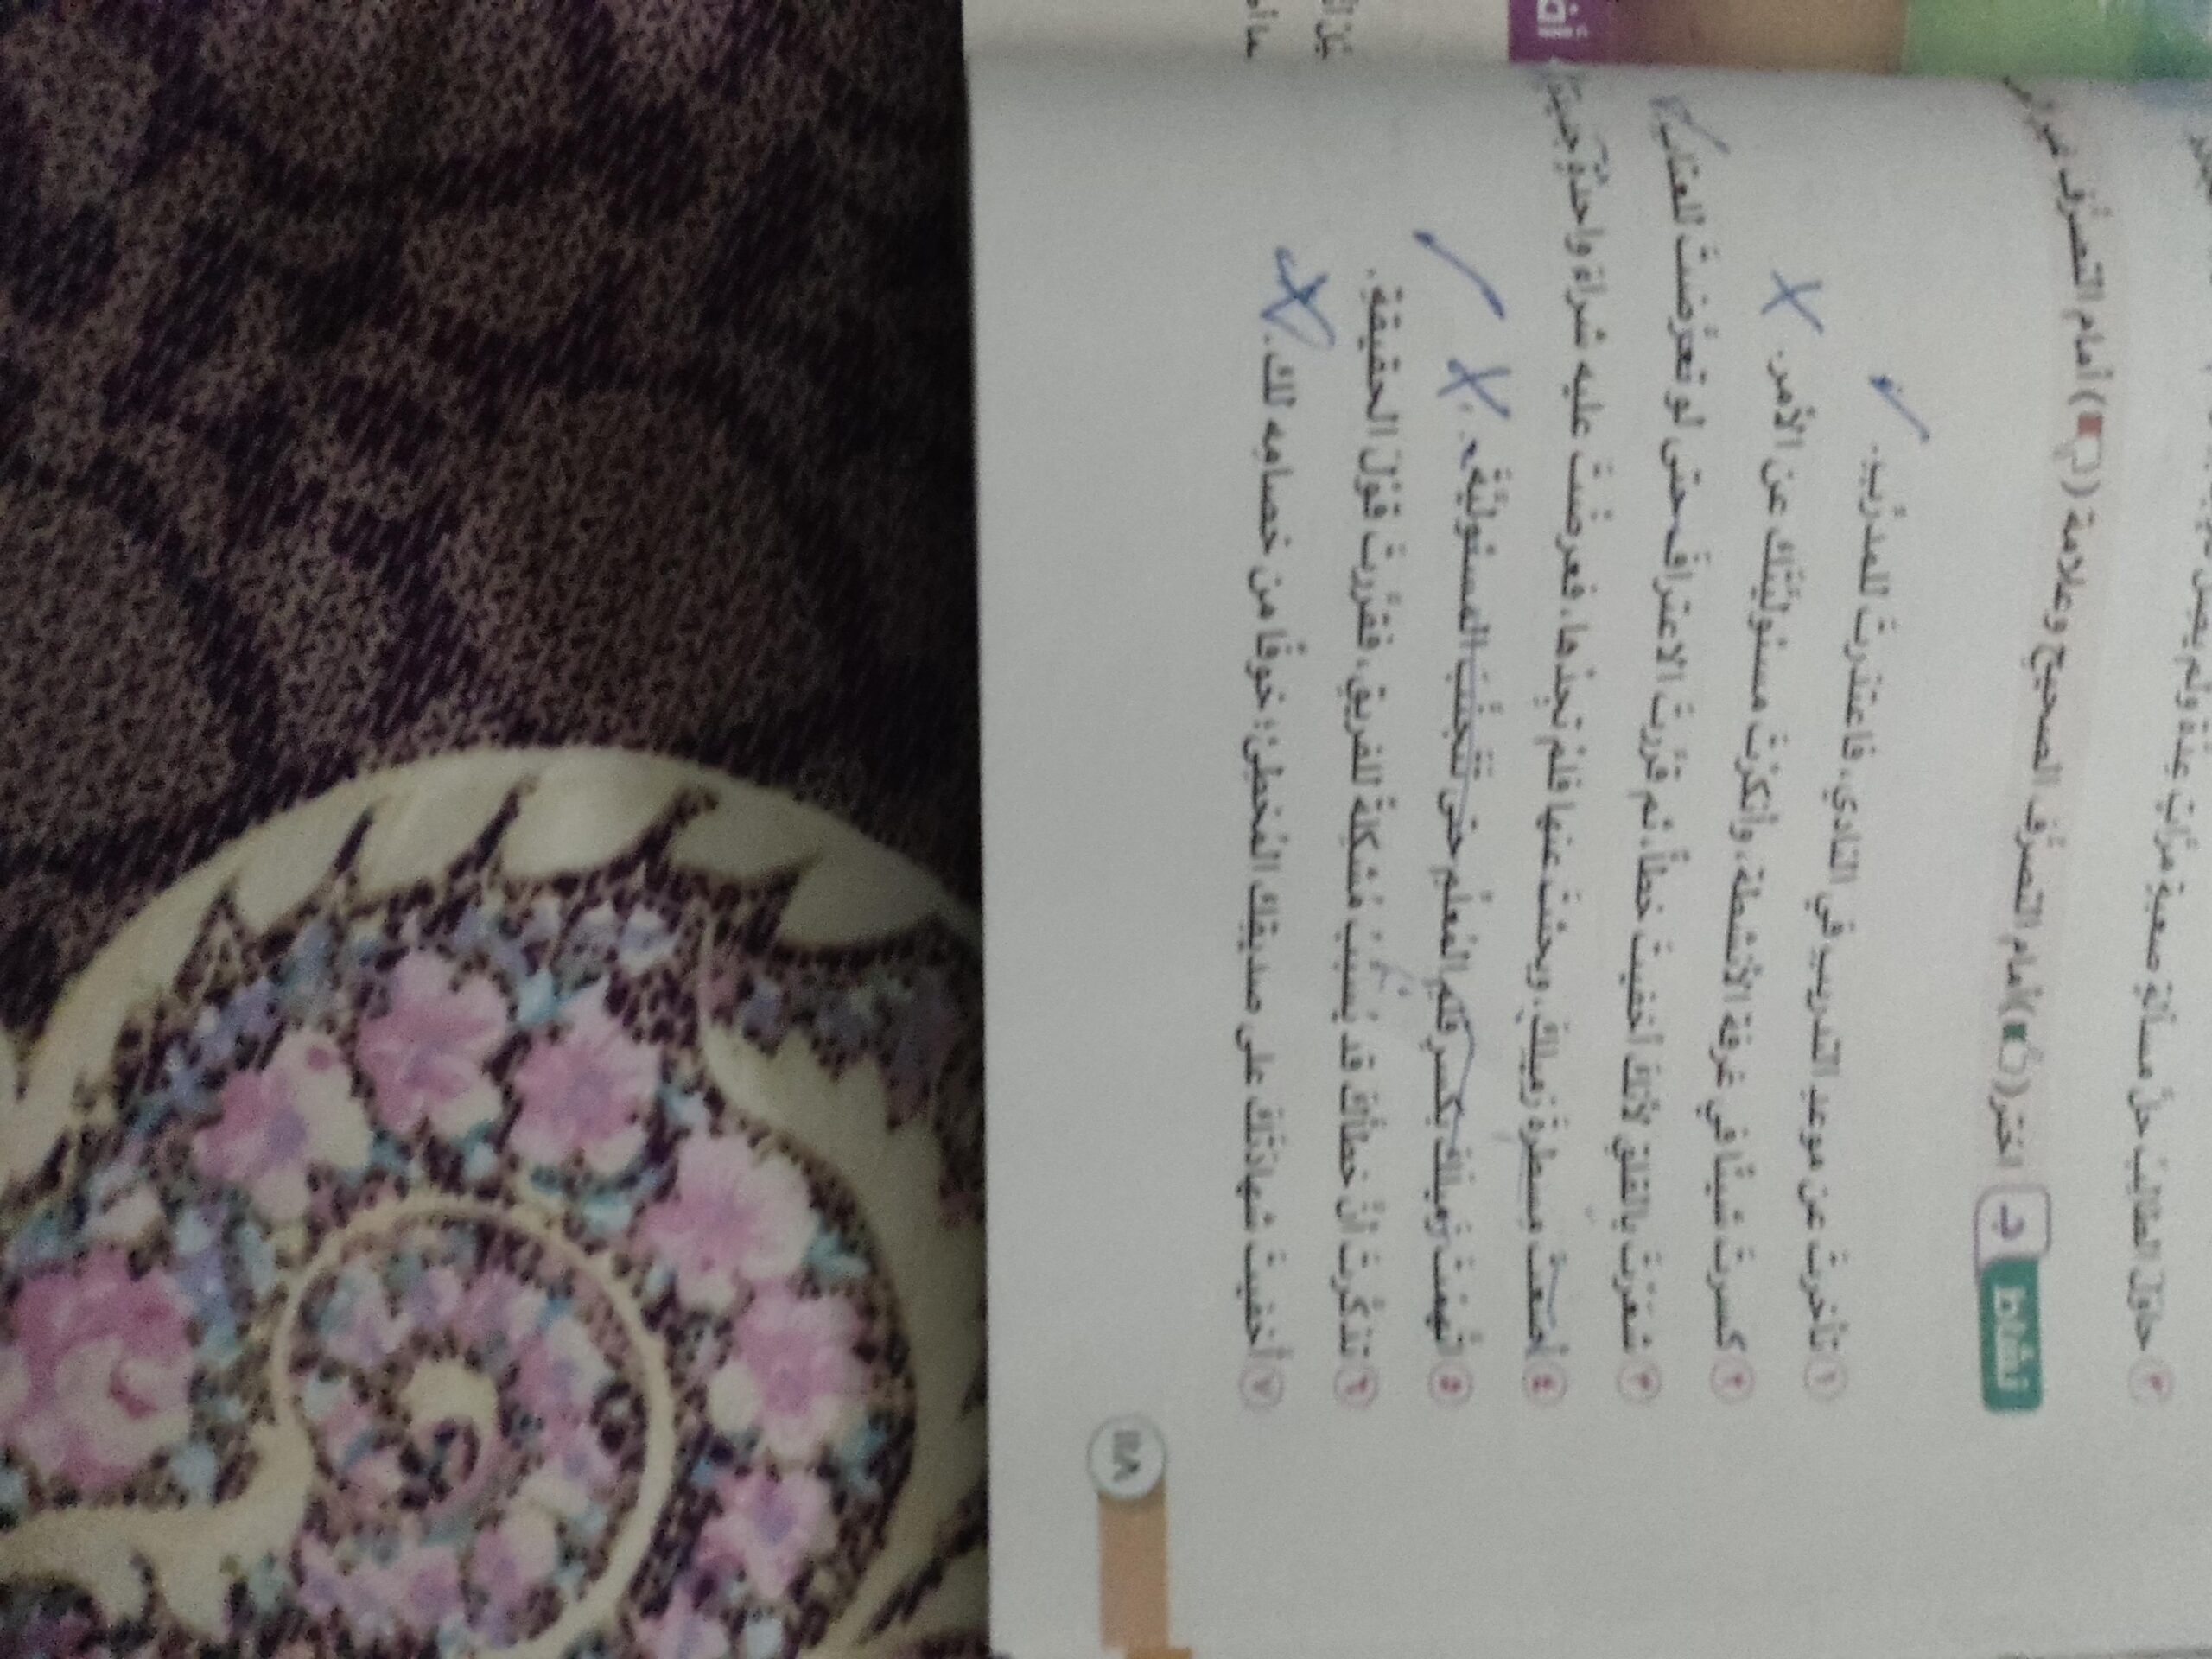 ٣ حاول الطالب حل مسألة صعبة مرات عدة ولم
نشاط د اختر (👍) أمام التصرُّف الصحيح وعلامة (👎) أمام التصرُّف غير
١ تأخرتَ عن موعد التدريب في النادي، فاعتذرتَ للمدرِّب. ✓
٢ كسرتَ شيئًا في غرفة الأنشطة، وأنكرْتَ مسئوليَّتَك عن الأمر. X
٣ شعَرْتَ بالقلقِ لأنَّكَ أخفيتَ خطأً، ثم قرَّرتَ الاعترافَ حتى لو تعرَّضتَ للعقاب. ✓
٤ أضعتَ مِسطرةَ زميلِكَ، وبحثتَ عنها فلم تجِدْها، فعرضْتَ عليه شراءَ واحدةٍ جديدة
٥ اتَّهمْتَ زميلَكَ بكسرِ قلمِ المُعلِّمِ حتى تتجنَّبَ المسئوليَّة. X ✓
٦ تذكَّرتَ أنَّ خطأَكَ قد يُسبِّبُ مُشكلةً للفريقِ، فقرَّرتَ قوْلَ الحقيقةِ.
٧ أخفيتَ شهادتَكَ على صديقِك المُخطِئِ؛ خوفًا من خصامِه لك. X
١١٨